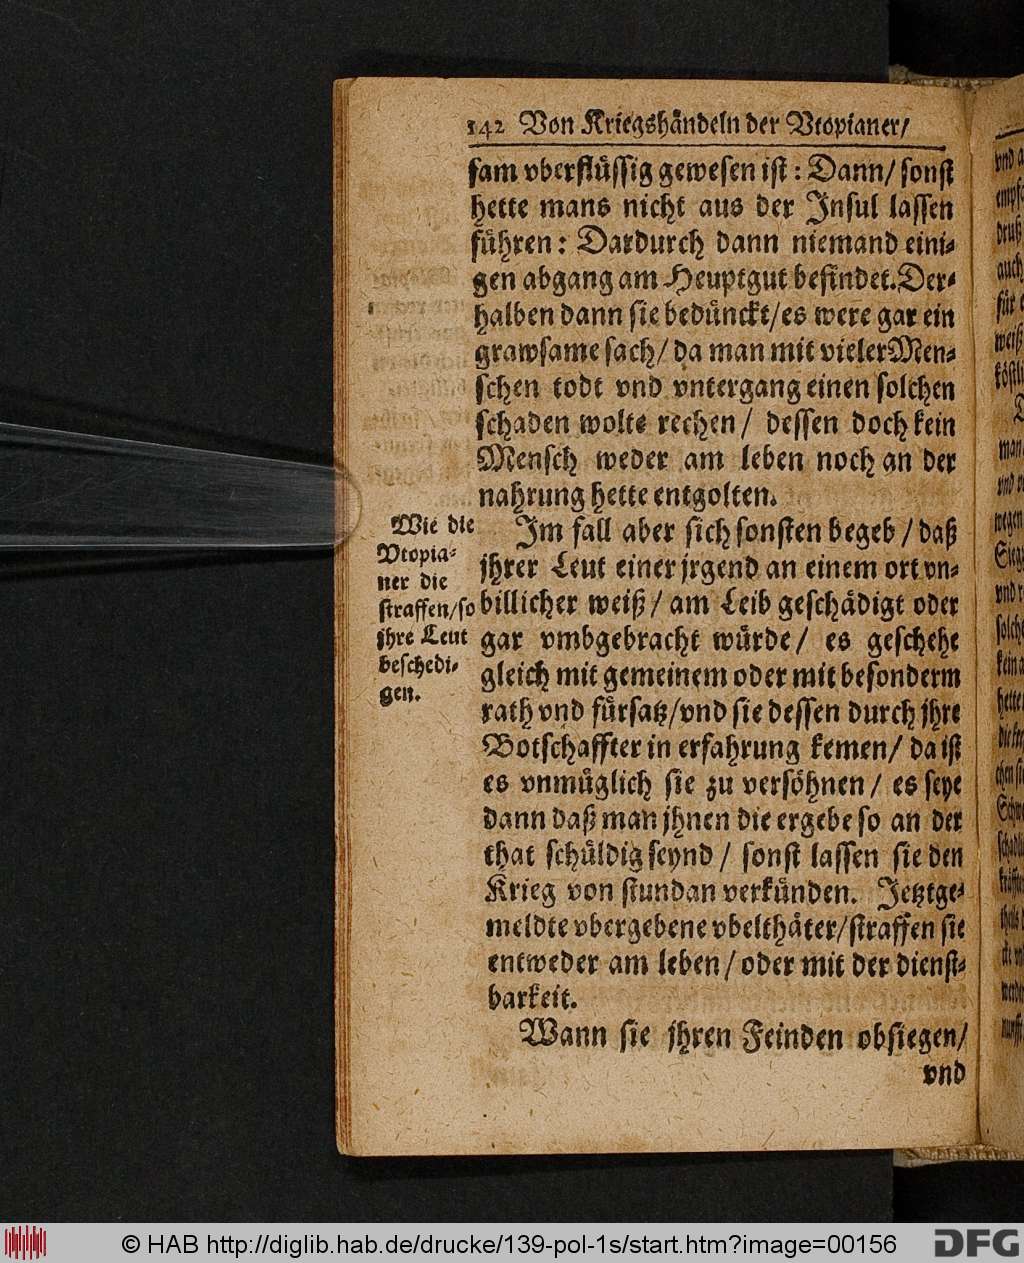 142 Von Kriegshändeln der Vtopianer/
sam vberflüssig gewesen ist: Dann/ sonst
hette mans nicht aus der Insul lassen
führen: Dardurch dann niemand eini-
gen abgang am Heuptgut befindet. Der-
halben dann sie bedünckt/ es were gar ein
grawsame sach/ da man mit vieler Men-
schen todt vnd vntergang einen solchen
schaden wolte rechen/ dessen doch kein
Mensch weder am leben noch an der
nahrung hette entgolten.
Wie die
Vtopia-
ner die
straffen/so
jhre Leut
beschedi-
gen.
Im fall aber sich sonsten begeb/ daß
jhrer Leut einer jrgend an einem ort vn-
billicher weiß/ am Leib geschädigt oder
gar vmbgebracht würde/ es geschehe
gleich mit gemeinem oder mit besonderm
rath vnd fürsatz/vnd sie dessen durch jhre
Botschaffter in erfahrung kemen/ da ist
es vnmüglich sie zu versöhnen/ es seye
dann daß man jhnen die ergebe so an der
that schüldig seynd/ sonst lassen sie den
Krieg von stundan verkünden. Jetztge-
meldte vbergebene vbelthäter/straffen sie
entweder am leben/ oder mit der dienst-
barkeit.
Wann sie jhren Feinden obsiegen/
vnd
© HAB http://diglib.hab.de/drucke/139-pol-1s/start.htm?image=00156
DFG